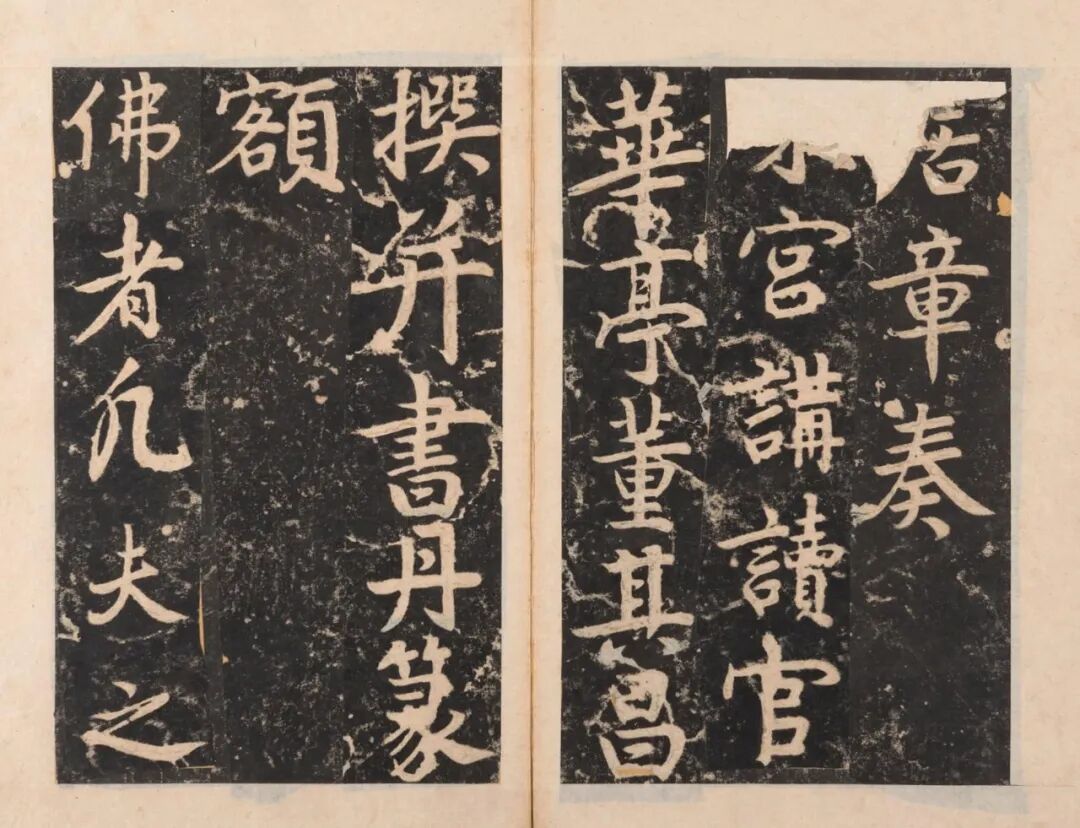 章奏
宮講讀官
華亭董其昌
撰并書丹篆
額
佛者凡夫之